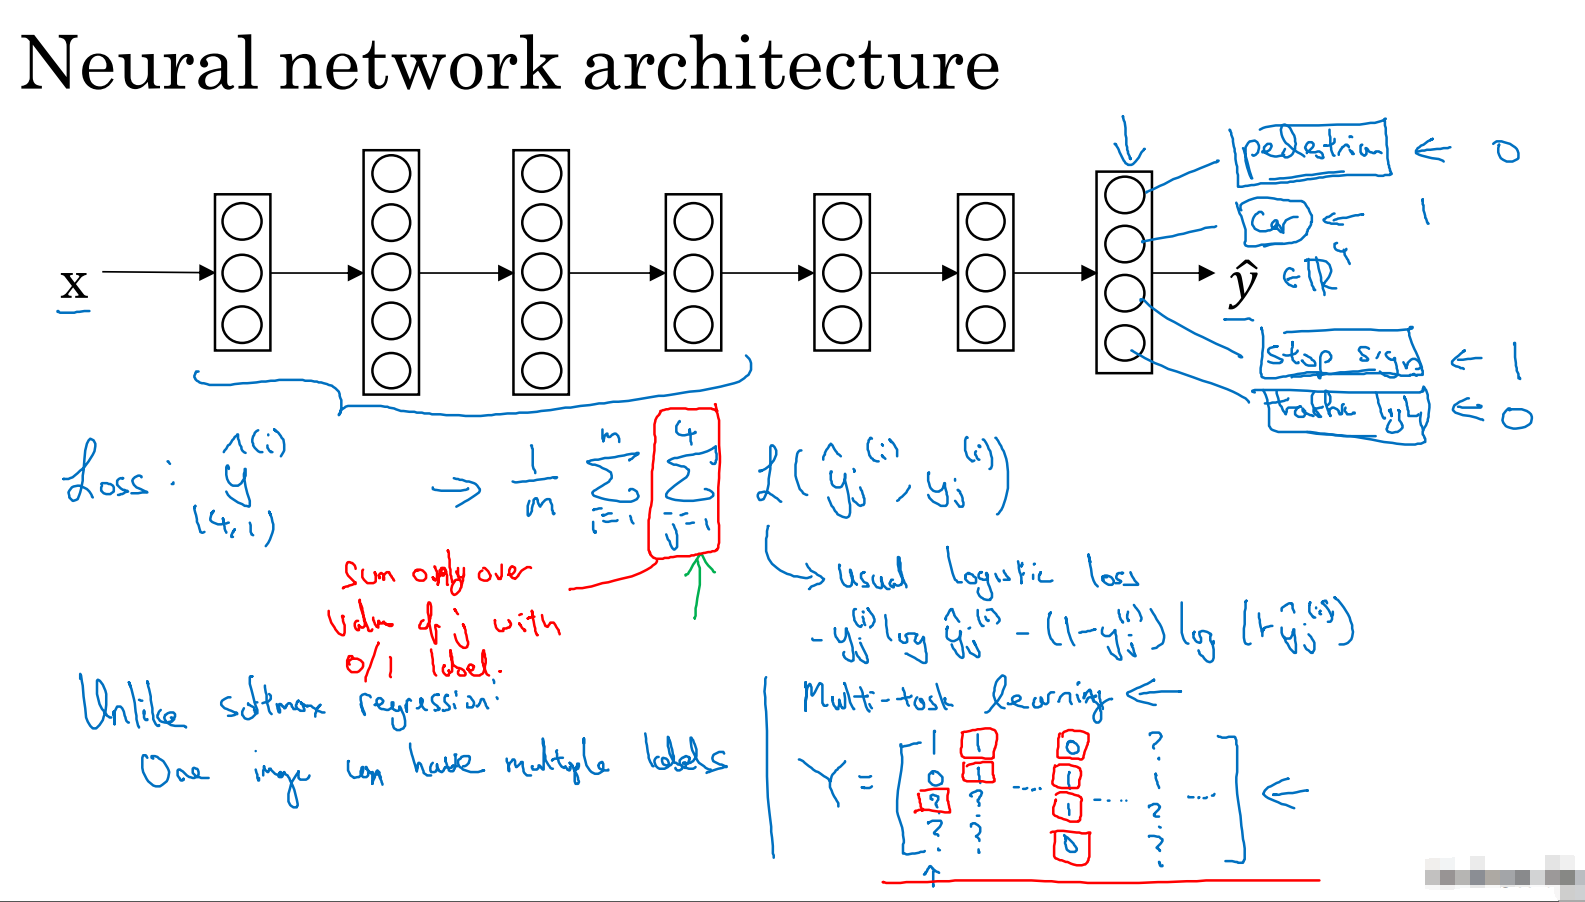 Neural network architecture
x
ŷ ∈ ℝ⁴
pedestrian ← 0
car ← 1
stop sign ← 1
traffic light ← 0
Loss: ŷ^(i)
(4,1)
→ 1/m Σ_{i=1}^{m} Σ_{j=1}^{4} ℒ(ŷ_j^(i), y_j^(i))
Sum only over
value of j with
0/1 label.
→ usual logistic loss
- y_j^(i) log ŷ_j^(i) - (1-y_j^(i)) log (1-ŷ_j^(i))
Unlike softmax regression:
One image can have multiple labels
Multi-task learning ←
Y =
1 1 0 ?
0 1 .... 1 1
? ? 1 .... ? ....
? ? 0 ?